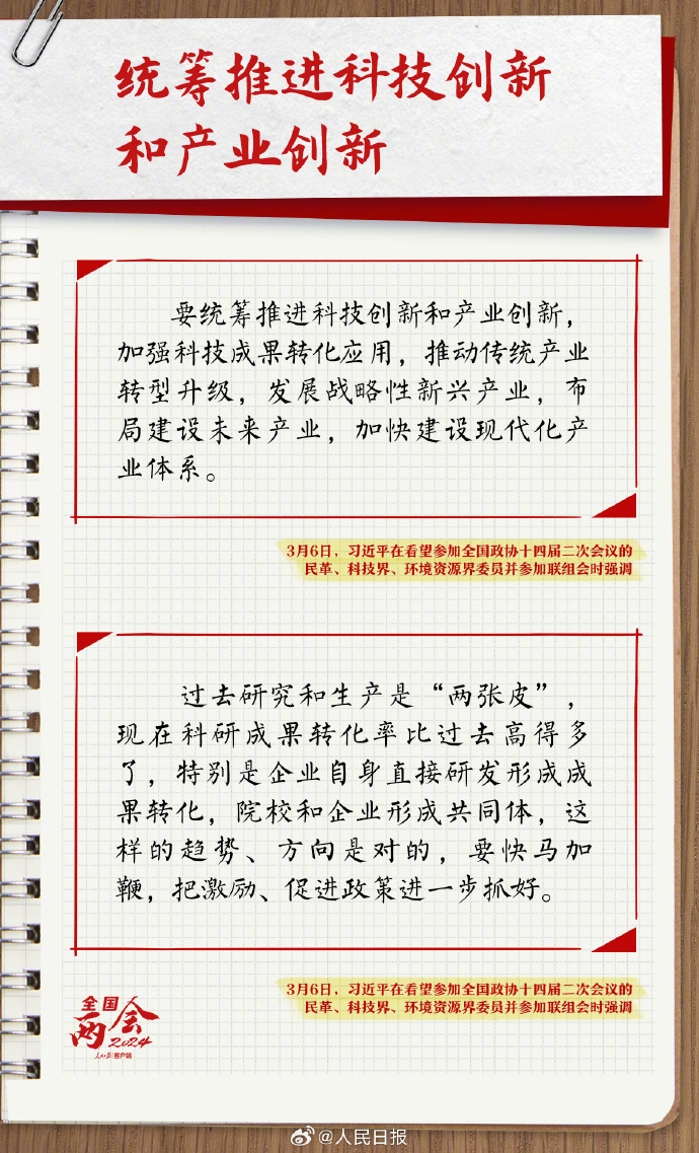 统筹推进科技创新
和产业创新
要统筹推进科技创新和产业创新，
加强科技成果转化应用，推动传统产业
转型升级，发展战略性新兴产业，布
局建设未来产业，加快建设现代化产
业体系。
3月6日，习近平在看望参加全国政协十四届二次会议的
民革、科技界、环境资源界委员并参加联组会时强调
过去研究和生产是“两张皮”，
现在科研成果转化率比过去高得多
了，特别是企业自身直接研发形成成
果转化，院校和企业形成共同体，这
样的趋势、方向是对的，要快马加
鞭，把激励、促进政策进一步抓好。
3月6日，习近平在看望参加全国政协十四届二次会议的
民革、科技界、环境资源界委员并参加联组会时强调
全国
两会
2024
人民日报 客户端
@人民日报